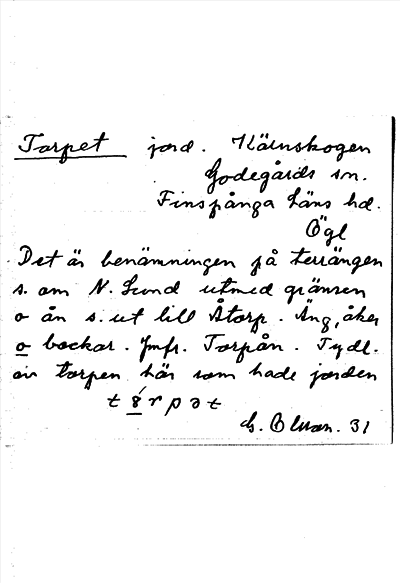 Torpet jord. Kärnskogen
Godegårds sn.
Finspånga läns hd.
Ögl
Det är benämningen på terrängen
s. om N. Lund utmed gränsen
o ån s. ut till Åtorp. Äng, åker
o backar. Jmfr. Torpån. Tydl.
är torpen här som hade jorden
G. 31